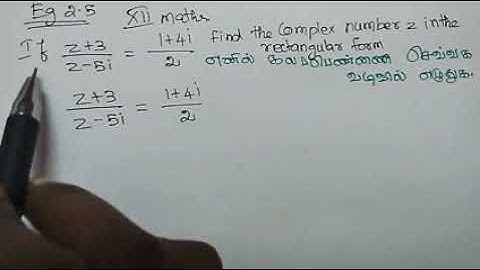 Eg 2.5 XII maths
If z+3/z-5i = 1+4i/2 find the complex number z in the
rectangular form
எனில் கலப்பெண்ணை செவ்வக
வடிவில் எழுதுக.
z+3/z-5i = 1+4i/2